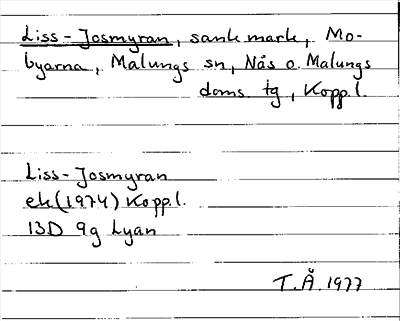 Liss-Josmyran, sank mark, Mo-
byarna, Malungs sn, Nås o. Malungs
doms tg, Kopp.l.
Liss-Josmyran
ek (1974) Kopp.l.
13D 9g Lyan
T.Å. 1977